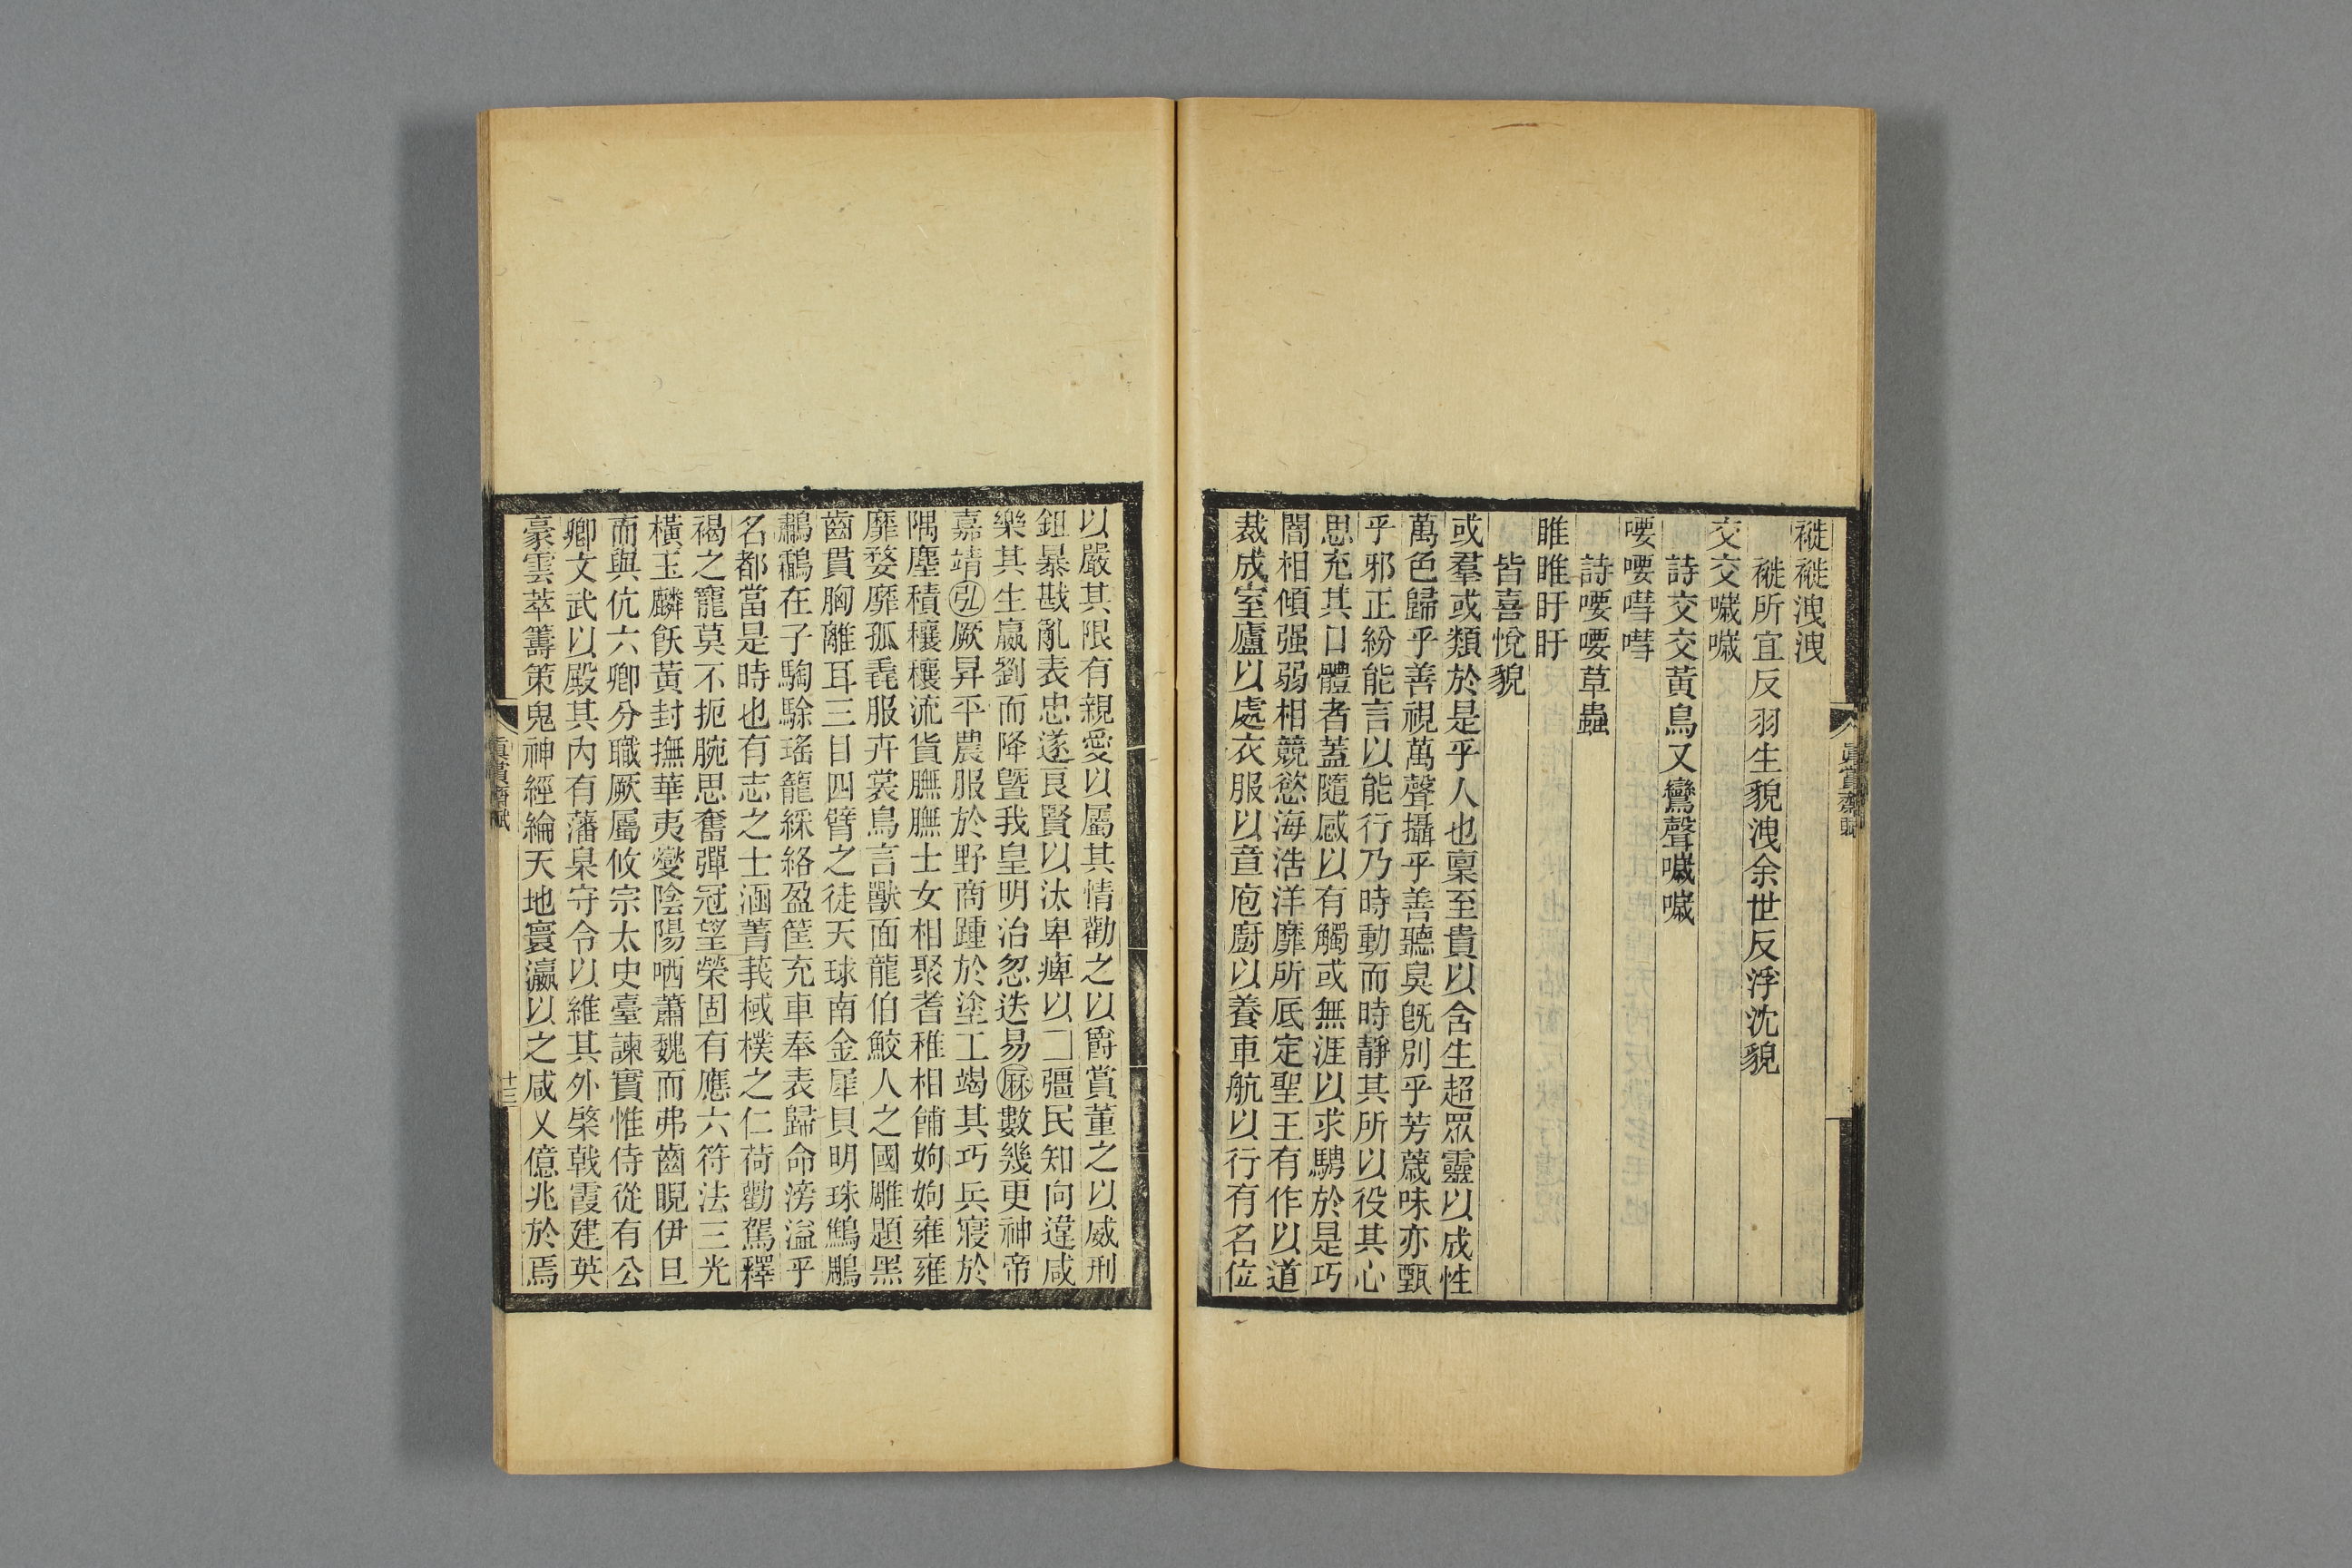 褷褷洩洩
褷所宜反羽生貌洩余世反浮沈貌
交交噦噦
詩交交黃鳥又鸞聲噦噦
喓喓嘒嘒
詩喓喓草蟲
睢睢盱盱
皆喜悅貌
或羣或類於是乎人也稟至貴以含生超眾靈以成性
萬色歸乎善視萬聲攝乎善聽臭旣別乎芳薉味亦甄
乎邪正紛能言以能行乃時動而時靜其所以役其心
思充其口體者蓋隨感以有觸或無涯以求騁於是巧
闇相傾强弱相競慾海浩洋靡所厎定聖王有作以道
裁成室廬以處衣服以章庖廚以養車航以行有名位
以嚴其限有親愛以屬其情勸之以爵賞董之以威刑
鉏暴戡亂表忠遂良賢以汰卑痺以彊民知向違咸
樂其生嬴劉而降曁我皇明治忽迭易厤數幾更神帝
嘉靖弘厥昇平農服於野商踵於塗工竭其巧兵寢於
隅塵積穰穰流貨膴膴士女相聚耆稚相餔姁姁雍雍
靡婺靡孤毳服卉裳鳥言獸面龍伯鮫人之國雕題黑
齒貫胸離耳三目四臂之徒天球南金犀貝明珠鷦鵰
鷫鸘在子騊駼瑤籠綵絡盈筐充車奉表歸命滂溢乎
名都當是時也有志之士涵菁莪棫樸之仁荷勸駕釋
褐之寵莫不扼腕思奮彈冠望榮固有應六符法三光
橫玉麟飫黃封撫華夷燮陰陽哂蕭魏而弗齒睨伊旦
而與伉六卿分職厥屬攸宗太史臺諫實惟侍從有公
卿文武以殿其內有藩臬守令以維其外棨戟霞建英
豪雲萃籌策鬼神經綸天地寰瀛以之咸乂億兆於焉
眞賞齋賦
十三